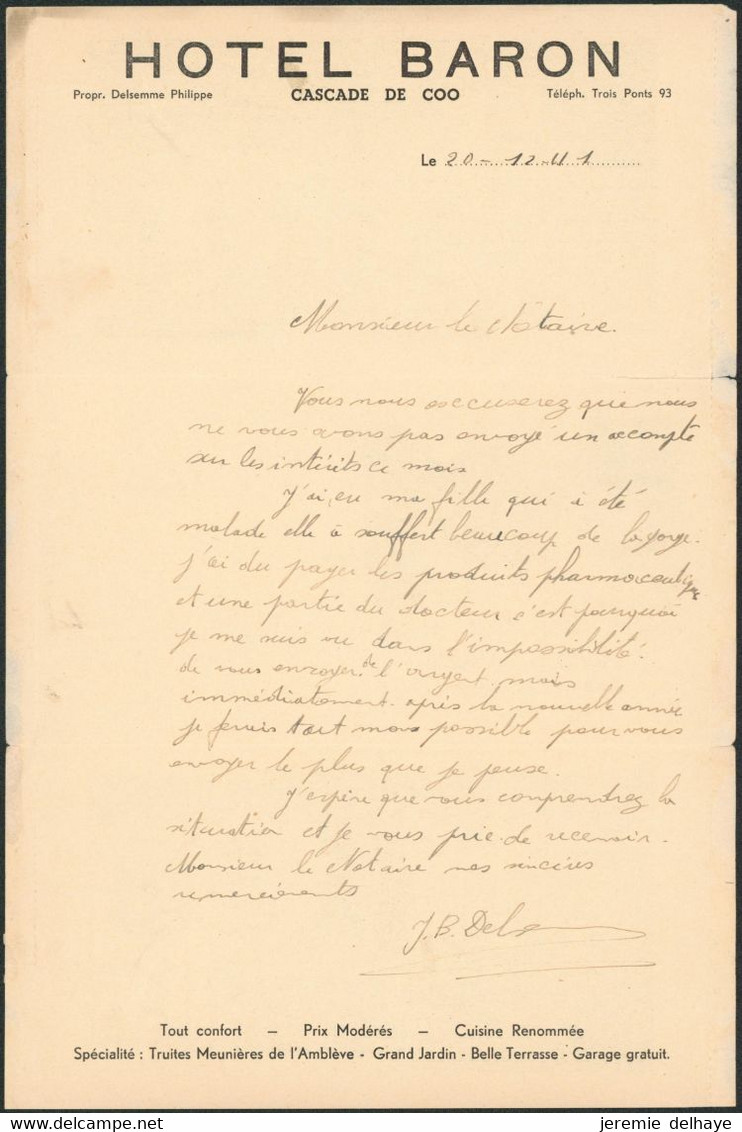 HOTEL BARON
Propr. Delsemme Philippe CASCADE DE COO Téléph. Trois Ponts 93
Le 20-12-41
Monsieur le Notaire.
Vous nous esccuserez que nous
ne vous avons pas envoyé un acompte
sur les intérits ce mois
J'ai eu ma fille qui à été
malade elle à souffert beaucoup de la gorge.
j'ai du payer les produits pharmaceutique
et une partie du docteur c'est pourquoi
je me suis vu dans l'impossibilité
de vous envoyer de l'argent mais
immédiatement après la nouvelle année
je ferais tout mons possible pour vous
envoyer le plus que je peuse.
J'espère que vous comprendrez la
situation et je vous prie de recevoir.
Monsieur le Notaire mes sincères
remerciements
J.B.
Tout confort – Prix Modérés – Cuisine Renommée
Spécialité : Truites Meunières de l'Amblève - Grand Jardin - Belle Terrasse - Garage gratuit.
jeremie delhaye